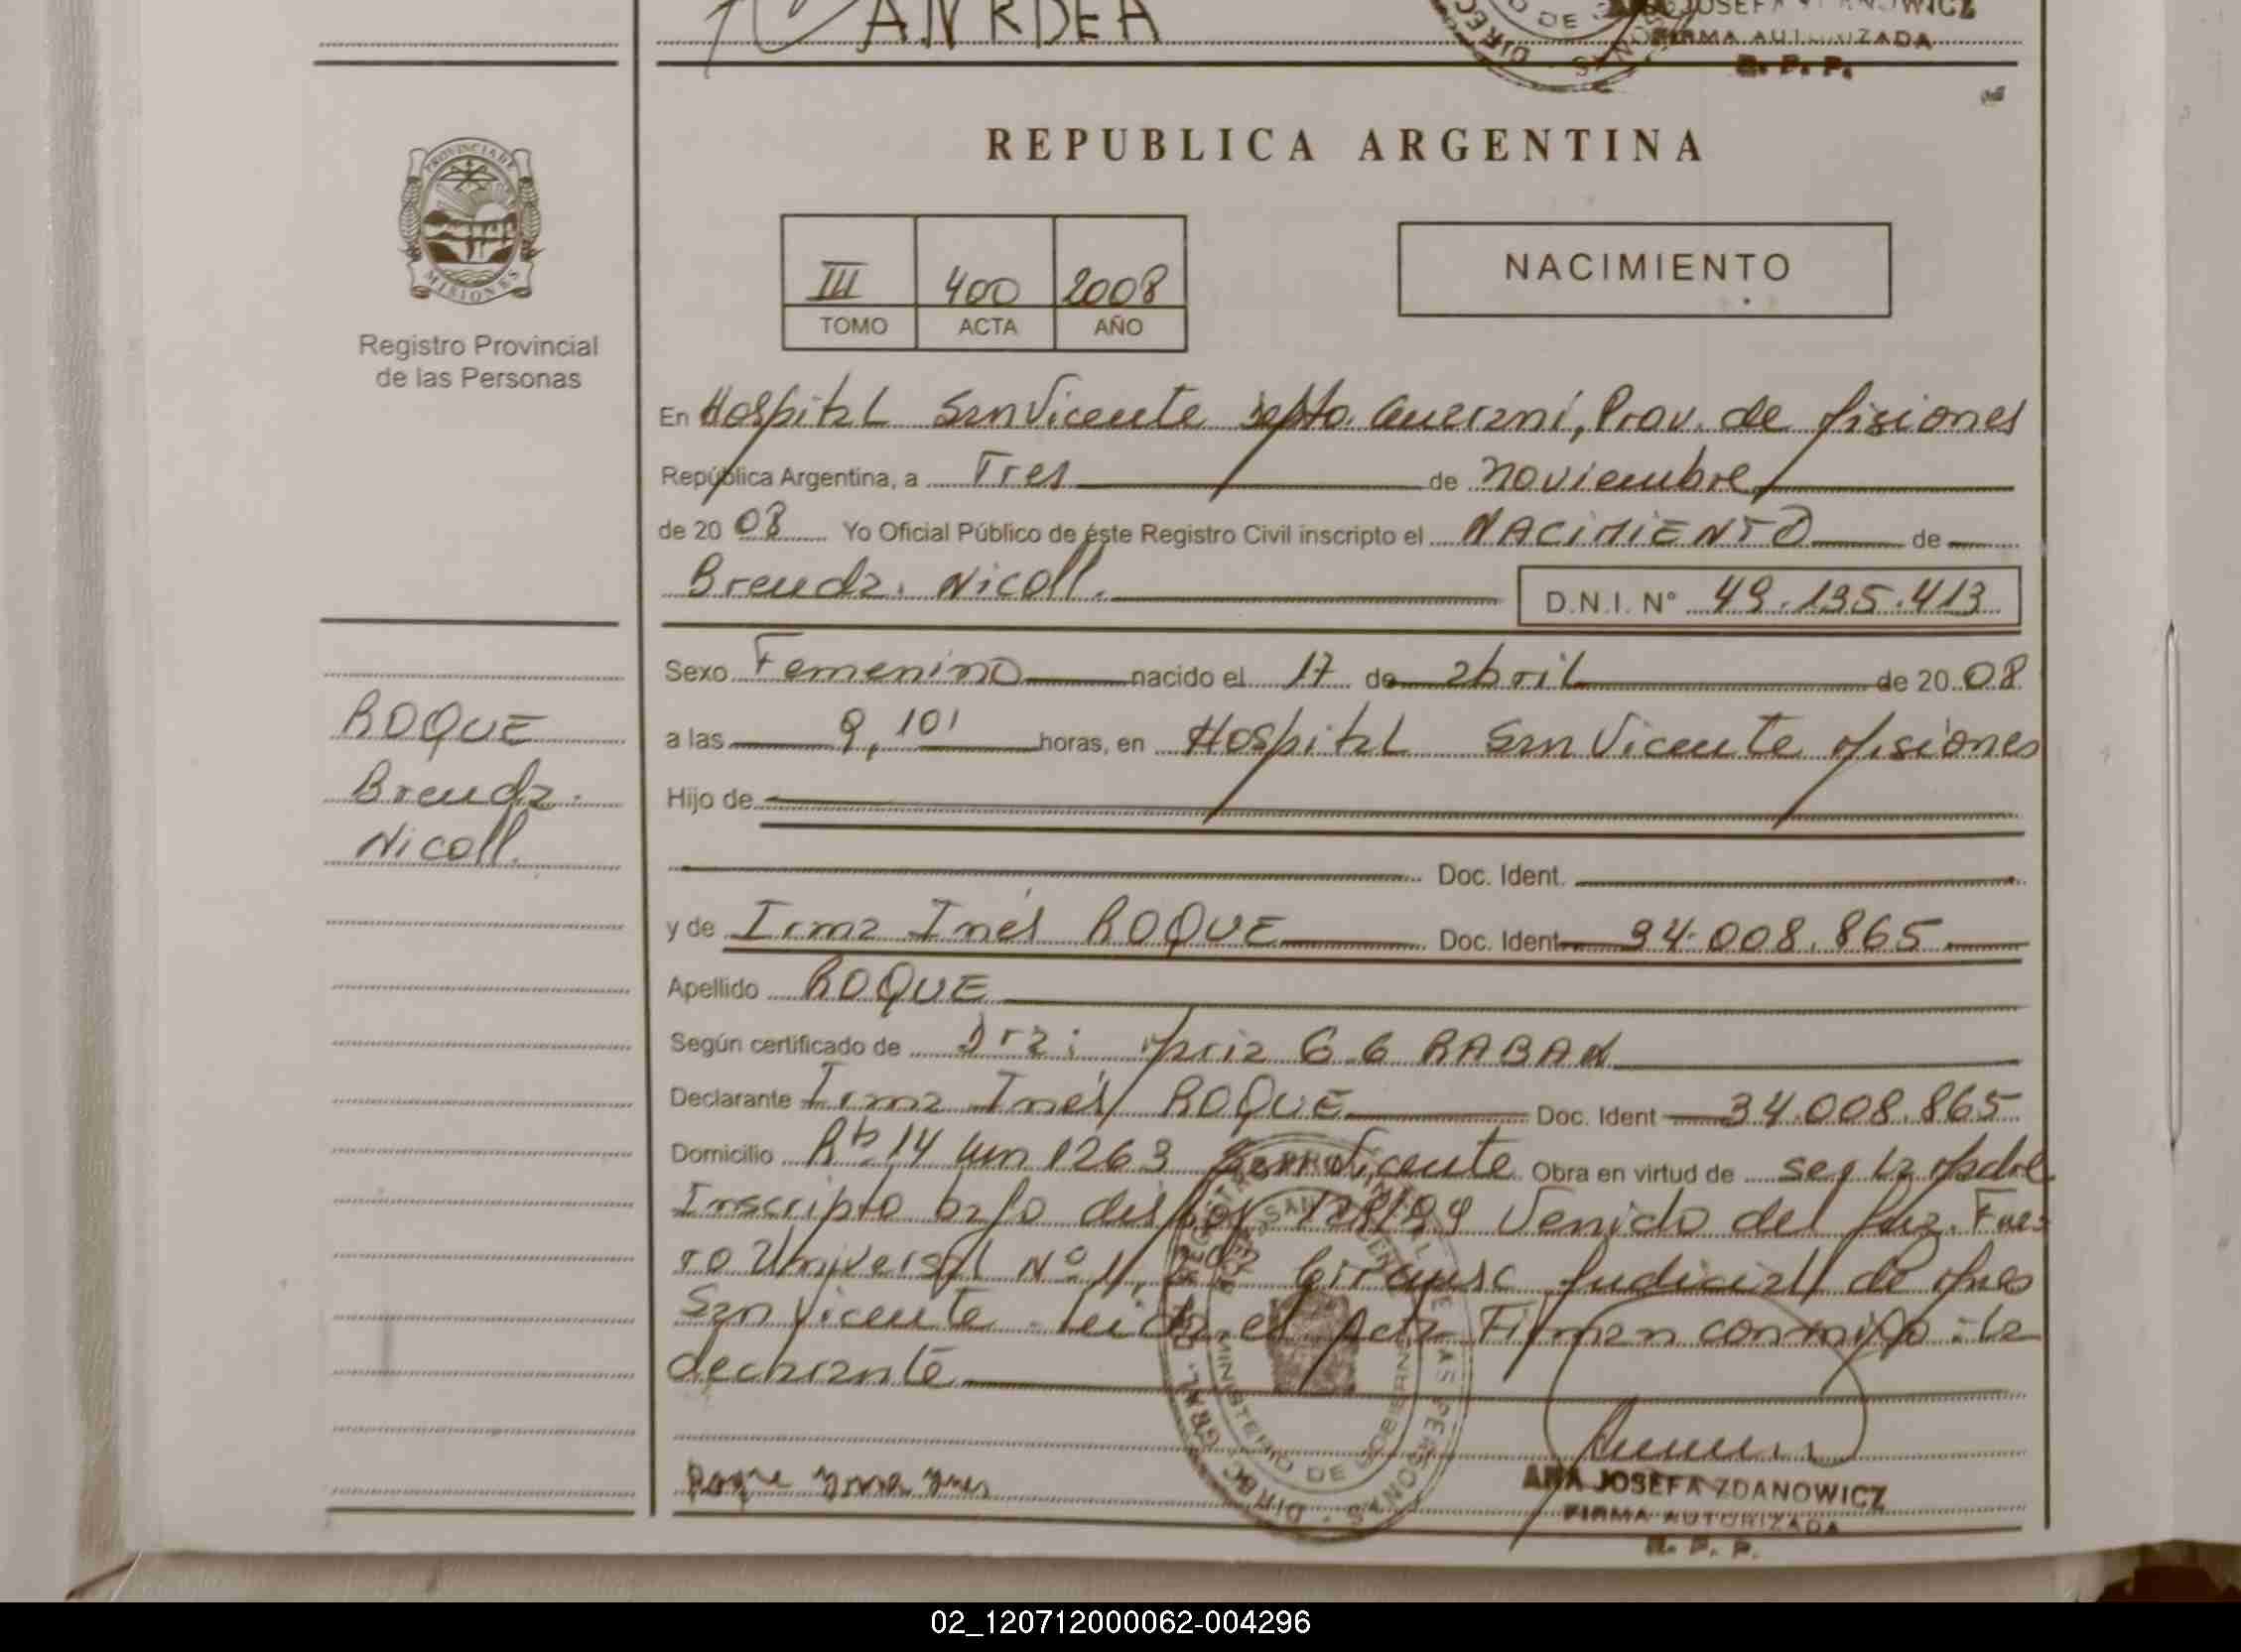 ANRDEA
JOSEFA ZDANOWICZ
FIRMA AUTORIZADA
R. P. P.
PROVINCIA DE
MISIONES
Registro Provincial
de las Personas
REPUBLICA ARGENTINA
III 400 2008
TOMO ACTA AÑO
NACIMIENTO
En Hospital San Vicente Depto. Guarani, Prov. de Misiones
República Argentina, a Tres de noviembre
de 20 08 Yo Oficial Público de éste Registro Civil inscripto el NACIMIENTO de
Brenda. Nicoll. D.N.I. Nº 49.135.413
Sexo Femenino nacido el 17 de abril de 20 08
a las 9,10' horas, en Hospital San Vicente Misiones
Hijo de
Doc. Ident.
y de Irma Inés ROQUE Doc. Ident 34.008.865
Apellido ROQUE
Según certificado de Dra: Maria G.G RABAN
Declarante Irma Inés ROQUE Doc. Ident 34.008.865
Domicilio Rta 14 km 1263 San Vicente Obra en virtud de ser la Madre
Inscripto bajo disp. Venido del Juz. Fue=
ro Universal Nº 1, Circunsc Judicial de Mnes
San Vicente. Leida el Acta Firman conmigo: la
declarante
ROQUE
Brenda.
Nicoll.
Roque Yrma Ynes
ANA JOSEFA ZDANOWICZ
FIRMA AUTORIZADA
R. P. P.
02_120712000062-004296